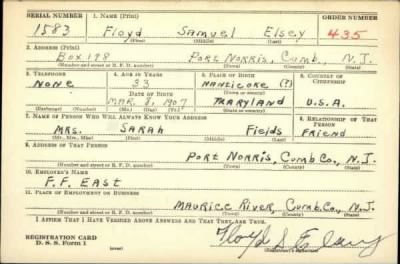 SERIAL NUMBER 1. NAME (Print) ORDER NUMBER
1583 Floyd Samuel Elsey 435
(First) (Middle) (Last)
2. ADDRESS (Print)
Box 198 Port Norris, Cumb. N.J.
(Number and street or R. F. D. number) (Town) (County) (State)
3. TELEPHONE 4. AGE IN YEARS 5. PLACE OF BIRTH 6. COUNTRY OF CITIZENSHIP
None 33 Nanticoke (?)
DATE OF BIRTH (Town or county)
Mar. 8, 1907 Maryland U.S.A.
(Exchange) (Number) (Mo.) (Day) (Yr.) (State or country)
7. NAME OF PERSON WHO WILL ALWAYS KNOW YOUR ADDRESS 8. RELATIONSHIP OF THAT PERSON
Mrs. Sarah Fields Friend
(Mr., Mrs., Miss) (First) (Middle) (Last)
9. ADDRESS OF THAT PERSON
Port Norris, Cumb Co., N.J.
(Number and street or R. F. D. number) (Town) (County) (State)
10. EMPLOYER'S NAME
F.F. East
11. PLACE OF EMPLOYMENT OR BUSINESS
Maurice River, Cumb. Co., N.J.
(Number and street or R. F. D. number) (Town) (County) (State)
I AFFIRM THAT I HAVE VERIFIED ABOVE ANSWERS AND THAT THEY ARE TRUE.
REGISTRATION CARD
D. S. S. Form 1 (over) Floyd S Elsey
(Registrant's signature)